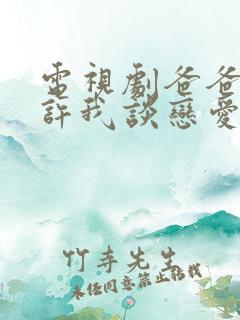 電視劇爸爸
許我談戀愛
竹寺先生
未經同意禁止轉載